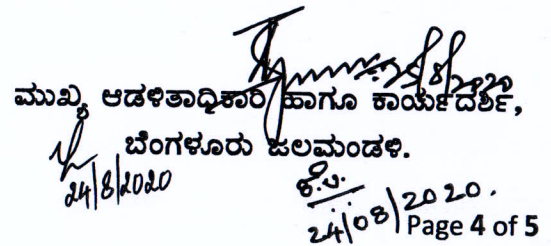 ಮುಖ್ಯ ಆಡಳಿತಾಧಿಕಾರಿ ಹಾಗೂ ಕಾರ್ಯದರ್ಶಿ,
ಬೆಂಗಳೂರು ಜಲಮಂಡಳಿ.
24/8/2020
24/08/2020.
Page 4 of 5